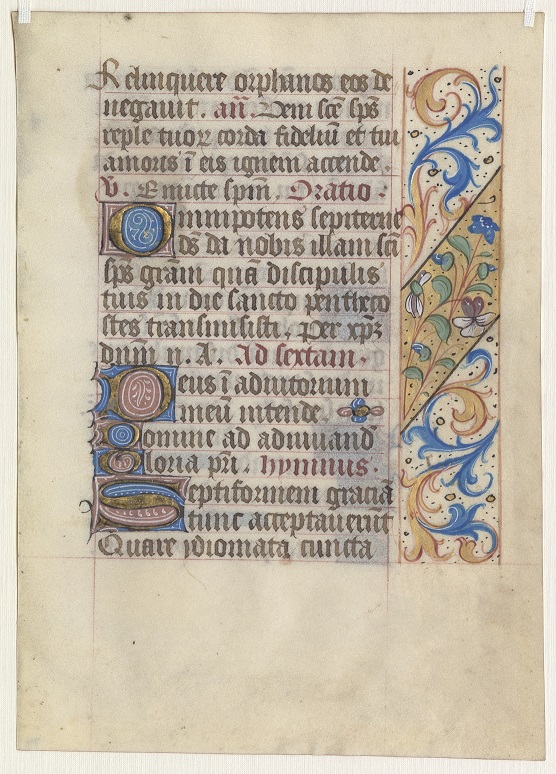 Relinquere orphanos eos de
negauit. añ. Veni sce sps
reple tuoꝝ corda fideliū et tui
amoris ī eis ignem accende.
V. Emicte spm̄. Oratio.
Omnipotens sempiterne
ds da nobis illam scā
sps grām quā discipulis
tuis in die sancto penteco
stes transmisisti. Per xpꝫ
dnm̄ n. A. Ad sextam.
Deus ī adiutorium
meū intende
Domine ad adiuuand
Gloria pri. hymnus.
Septiformem graciā
tunc acceptauerūt
Quare ydiomata cuncta